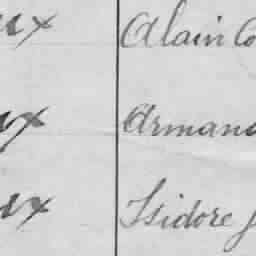 ux Alain Co
ux Armand
ux Isidore J